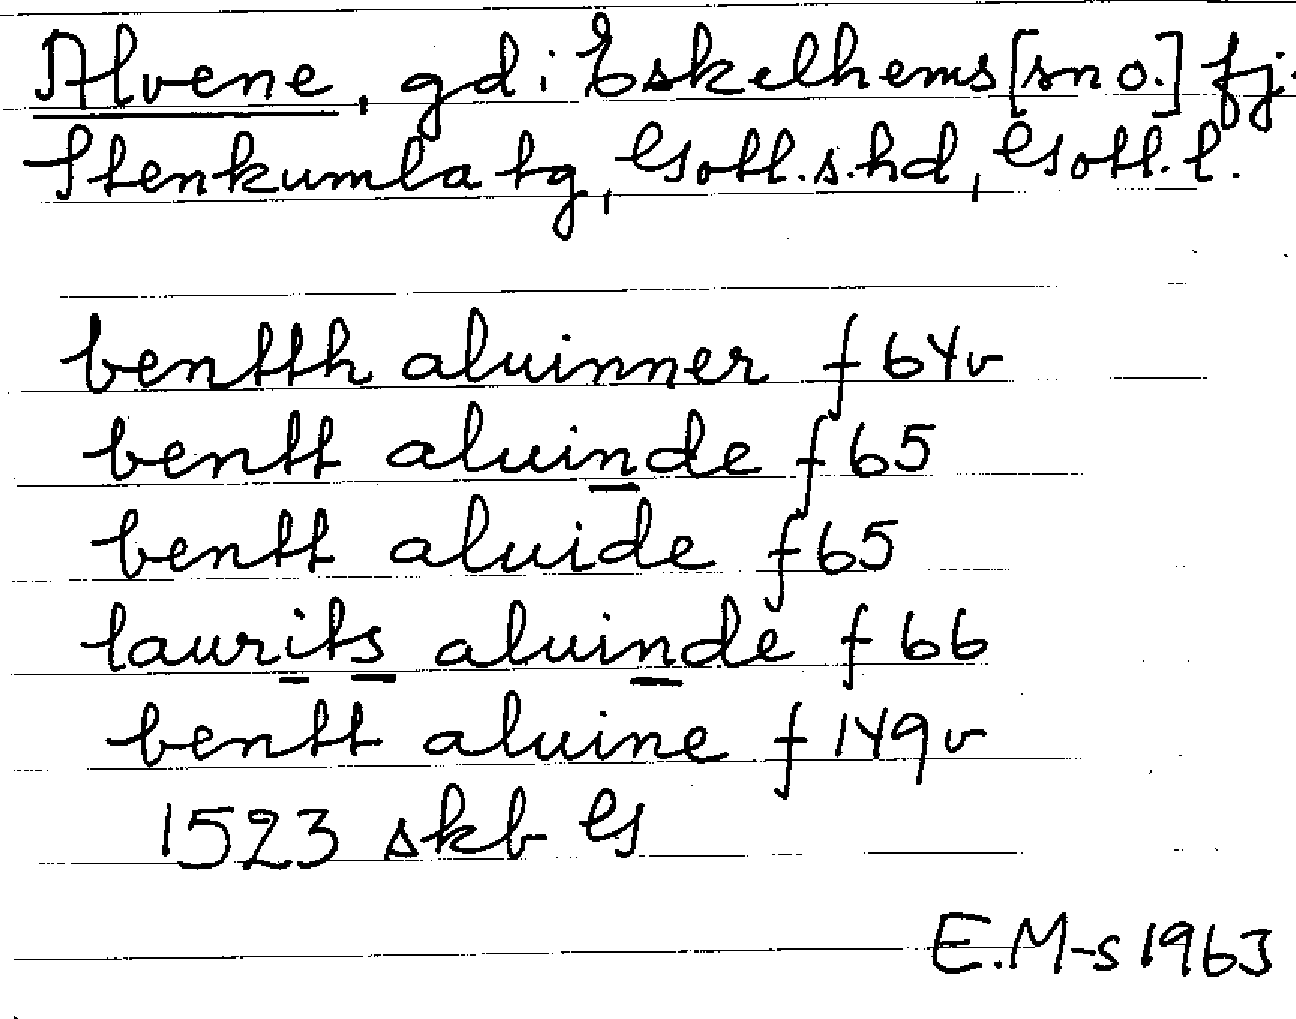 Alvene, gd i Eskelhems [sn o.] fj.
Stenkumla tg, Gotl.s.hd, Gotl.l.
benttth aluinner f 64v
bentt aluinde f 65
bentt aluide f 65
laurits aluinde f 66
bentt aluine f 149v
1523 skb G
E.M-s 1963